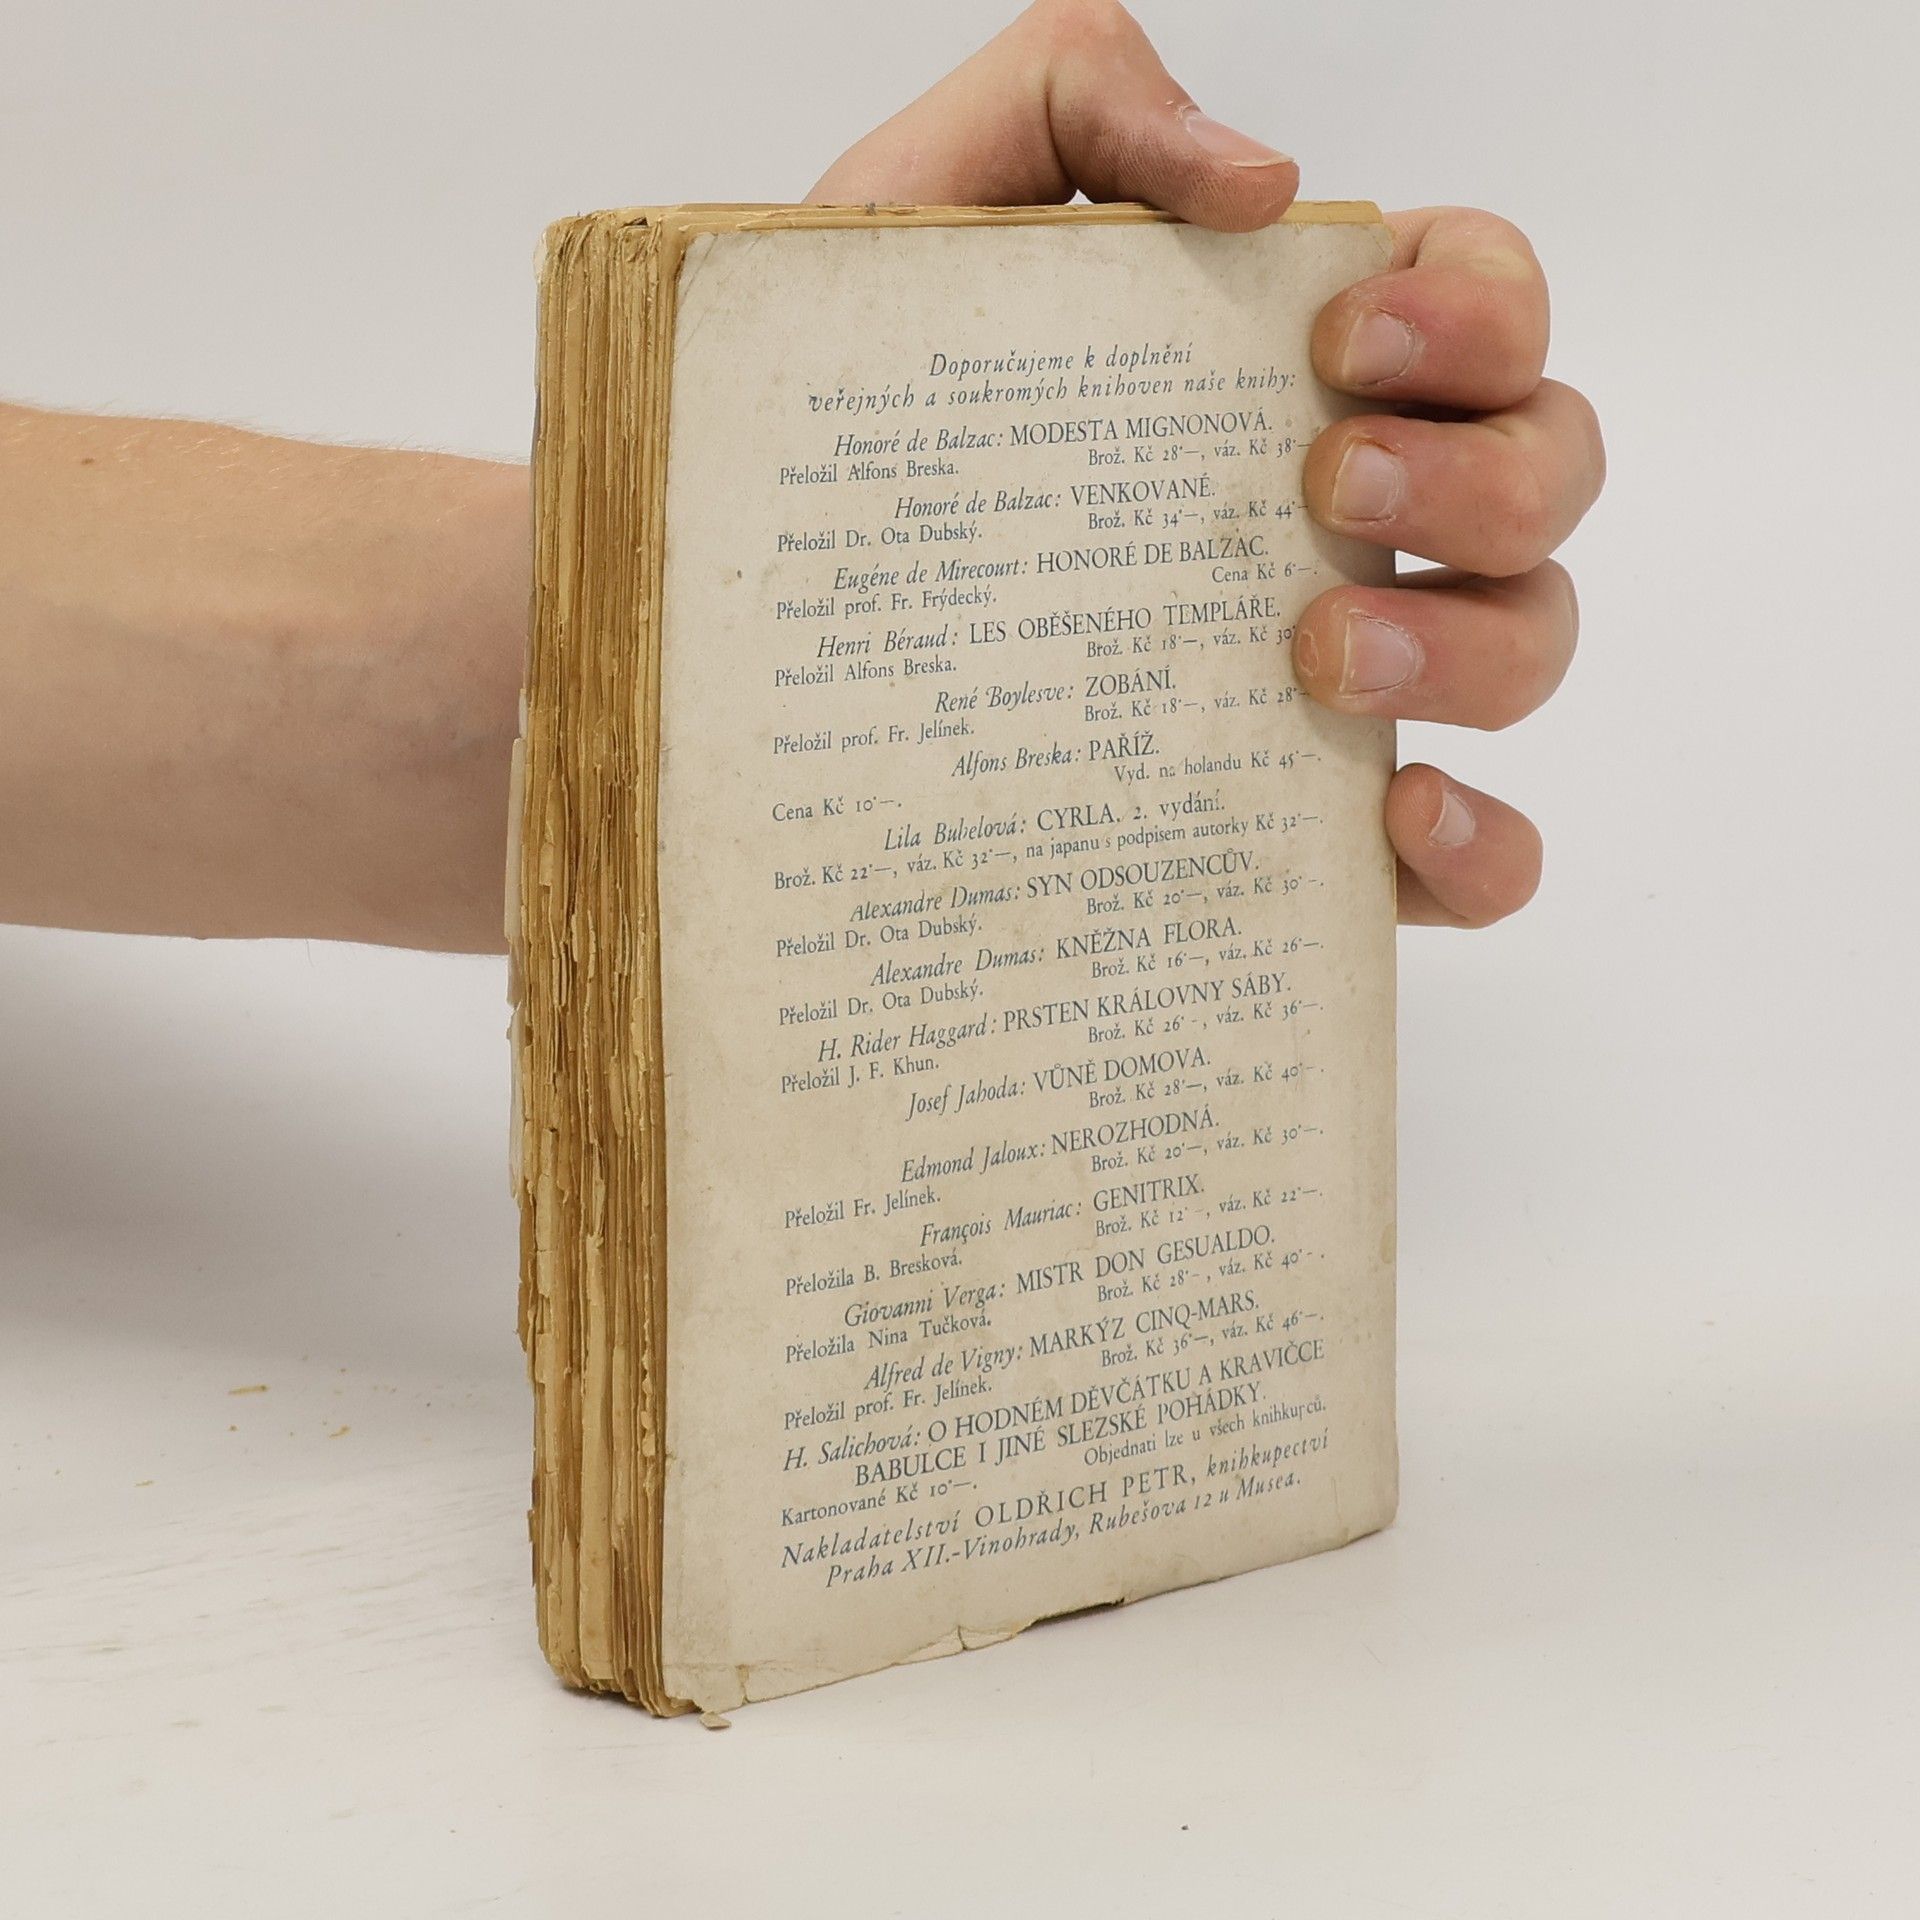 Doporučujeme k doplnění
veřejných a soukromých knihoven naše knihy:
Honoré de Balzac: MODESTA MIGNONOVÁ.
Přeložil Alfons Breska. Brož. Kč 28·—, váz. Kč 38·—
Honoré de Balzac: VENKOVANÉ.
Přeložil Dr. Ota Dubský. Brož. Kč 34·—, váz. Kč 44·—
Eugéne de Mirecourt: HONORÉ DE BALZAC.
Přeložil prof. Fr. Frýdecký. Cena Kč 6·—.
Henri Béraud: LES OBĚŠENÉHO TEMPLÁŘE.
Přeložil Alfons Breska. Brož. Kč 18·—, váz. Kč 30·
René Boylesve: ZOBÁNÍ.
Přeložil prof. Fr. Jelínek. Brož. Kč 18·—, váz. Kč 28·—
Alfons Breska: PAŘÍŽ.
Cena Kč 10·—. Vyd. na holandu Kč 45·—.
Lila Bubelová: CYRLA. 2. vydání.
Brož. Kč 22·—, váz. Kč 32·—, na japanu s podpisem autorky Kč 32·—.
Alexandre Dumas: SYN ODSOUZENCŮV.
Přeložil Dr. Ota Dubský. Brož. Kč 20·—, váz. Kč 30·—.
Alexandre Dumas: KNĚŽNA FLORA.
Přeložil Dr. Ota Dubský. Brož. Kč 16·—, váz. Kč 26·—.
H. Rider Haggard: PRSTEN KRÁLOVNY SÁBY.
Přeložil J. F. Khun. Brož. Kč 26·—, váz. Kč 36·—.
Josef Jahoda: VŮNĚ DOMOVA.
Brož. Kč 28·—, váz. Kč 40·—.
Edmond Jaloux: NEROZHODNÁ.
Přeložil Fr. Jelínek. Brož. Kč 20·—, váz. Kč 30·—.
François Mauriac: GENITRIX.
Přeložila B. Bresková. Brož. Kč 12·—, váz. Kč 22·—.
Giovanni Verga: MISTR DON GESUALDO.
Přeložila Nina Tučková. Brož. Kč 28·—, váz. Kč 40·—.
Alfred de Vigny: MARKÝZ CINQ-MARS.
Přeložil prof. Fr. Jelínek. Brož. Kč 36·—, váz. Kč 46·—.
H. Salichová: O HODNÉM DĚVČÁTKU A KRAVIČCE
BABULCE I JINÉ SLEZSKÉ POHÁDKY.
Kartonované Kč 10·—. Objednati lze u všech knihkupců.
Nakladatelství OLDŘICH PETR, knihkupectví
Praha XII.-Vinohrady, Rubešova 12 u Musea.